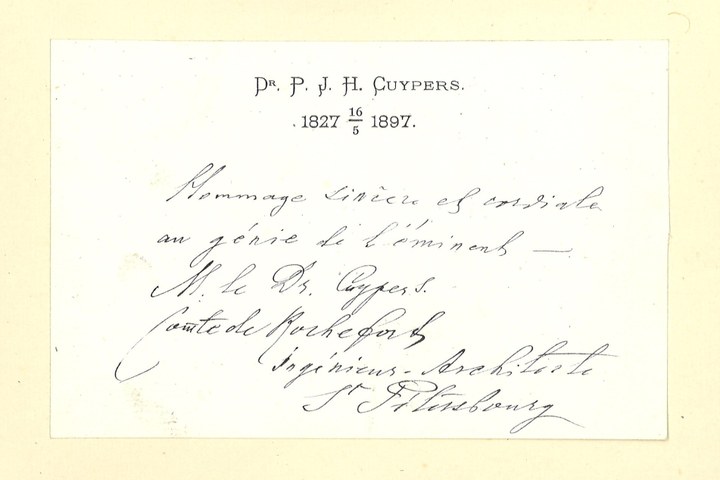 Dr. P. J. H. Cuypers.
1827 16/5 1897.
Hommage sincère et cordiale
au génie de l'éminent —
M. le Dr. Cuypers.
Comte de Rochefort
Ingénieur-Architecte
St Pétersbourg